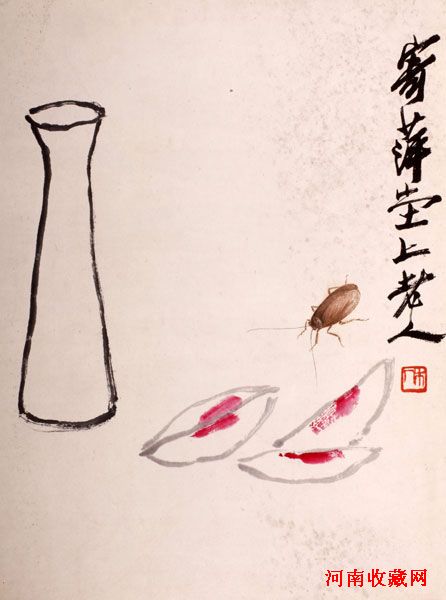 寄萍堂上老人
木人
河南收藏网